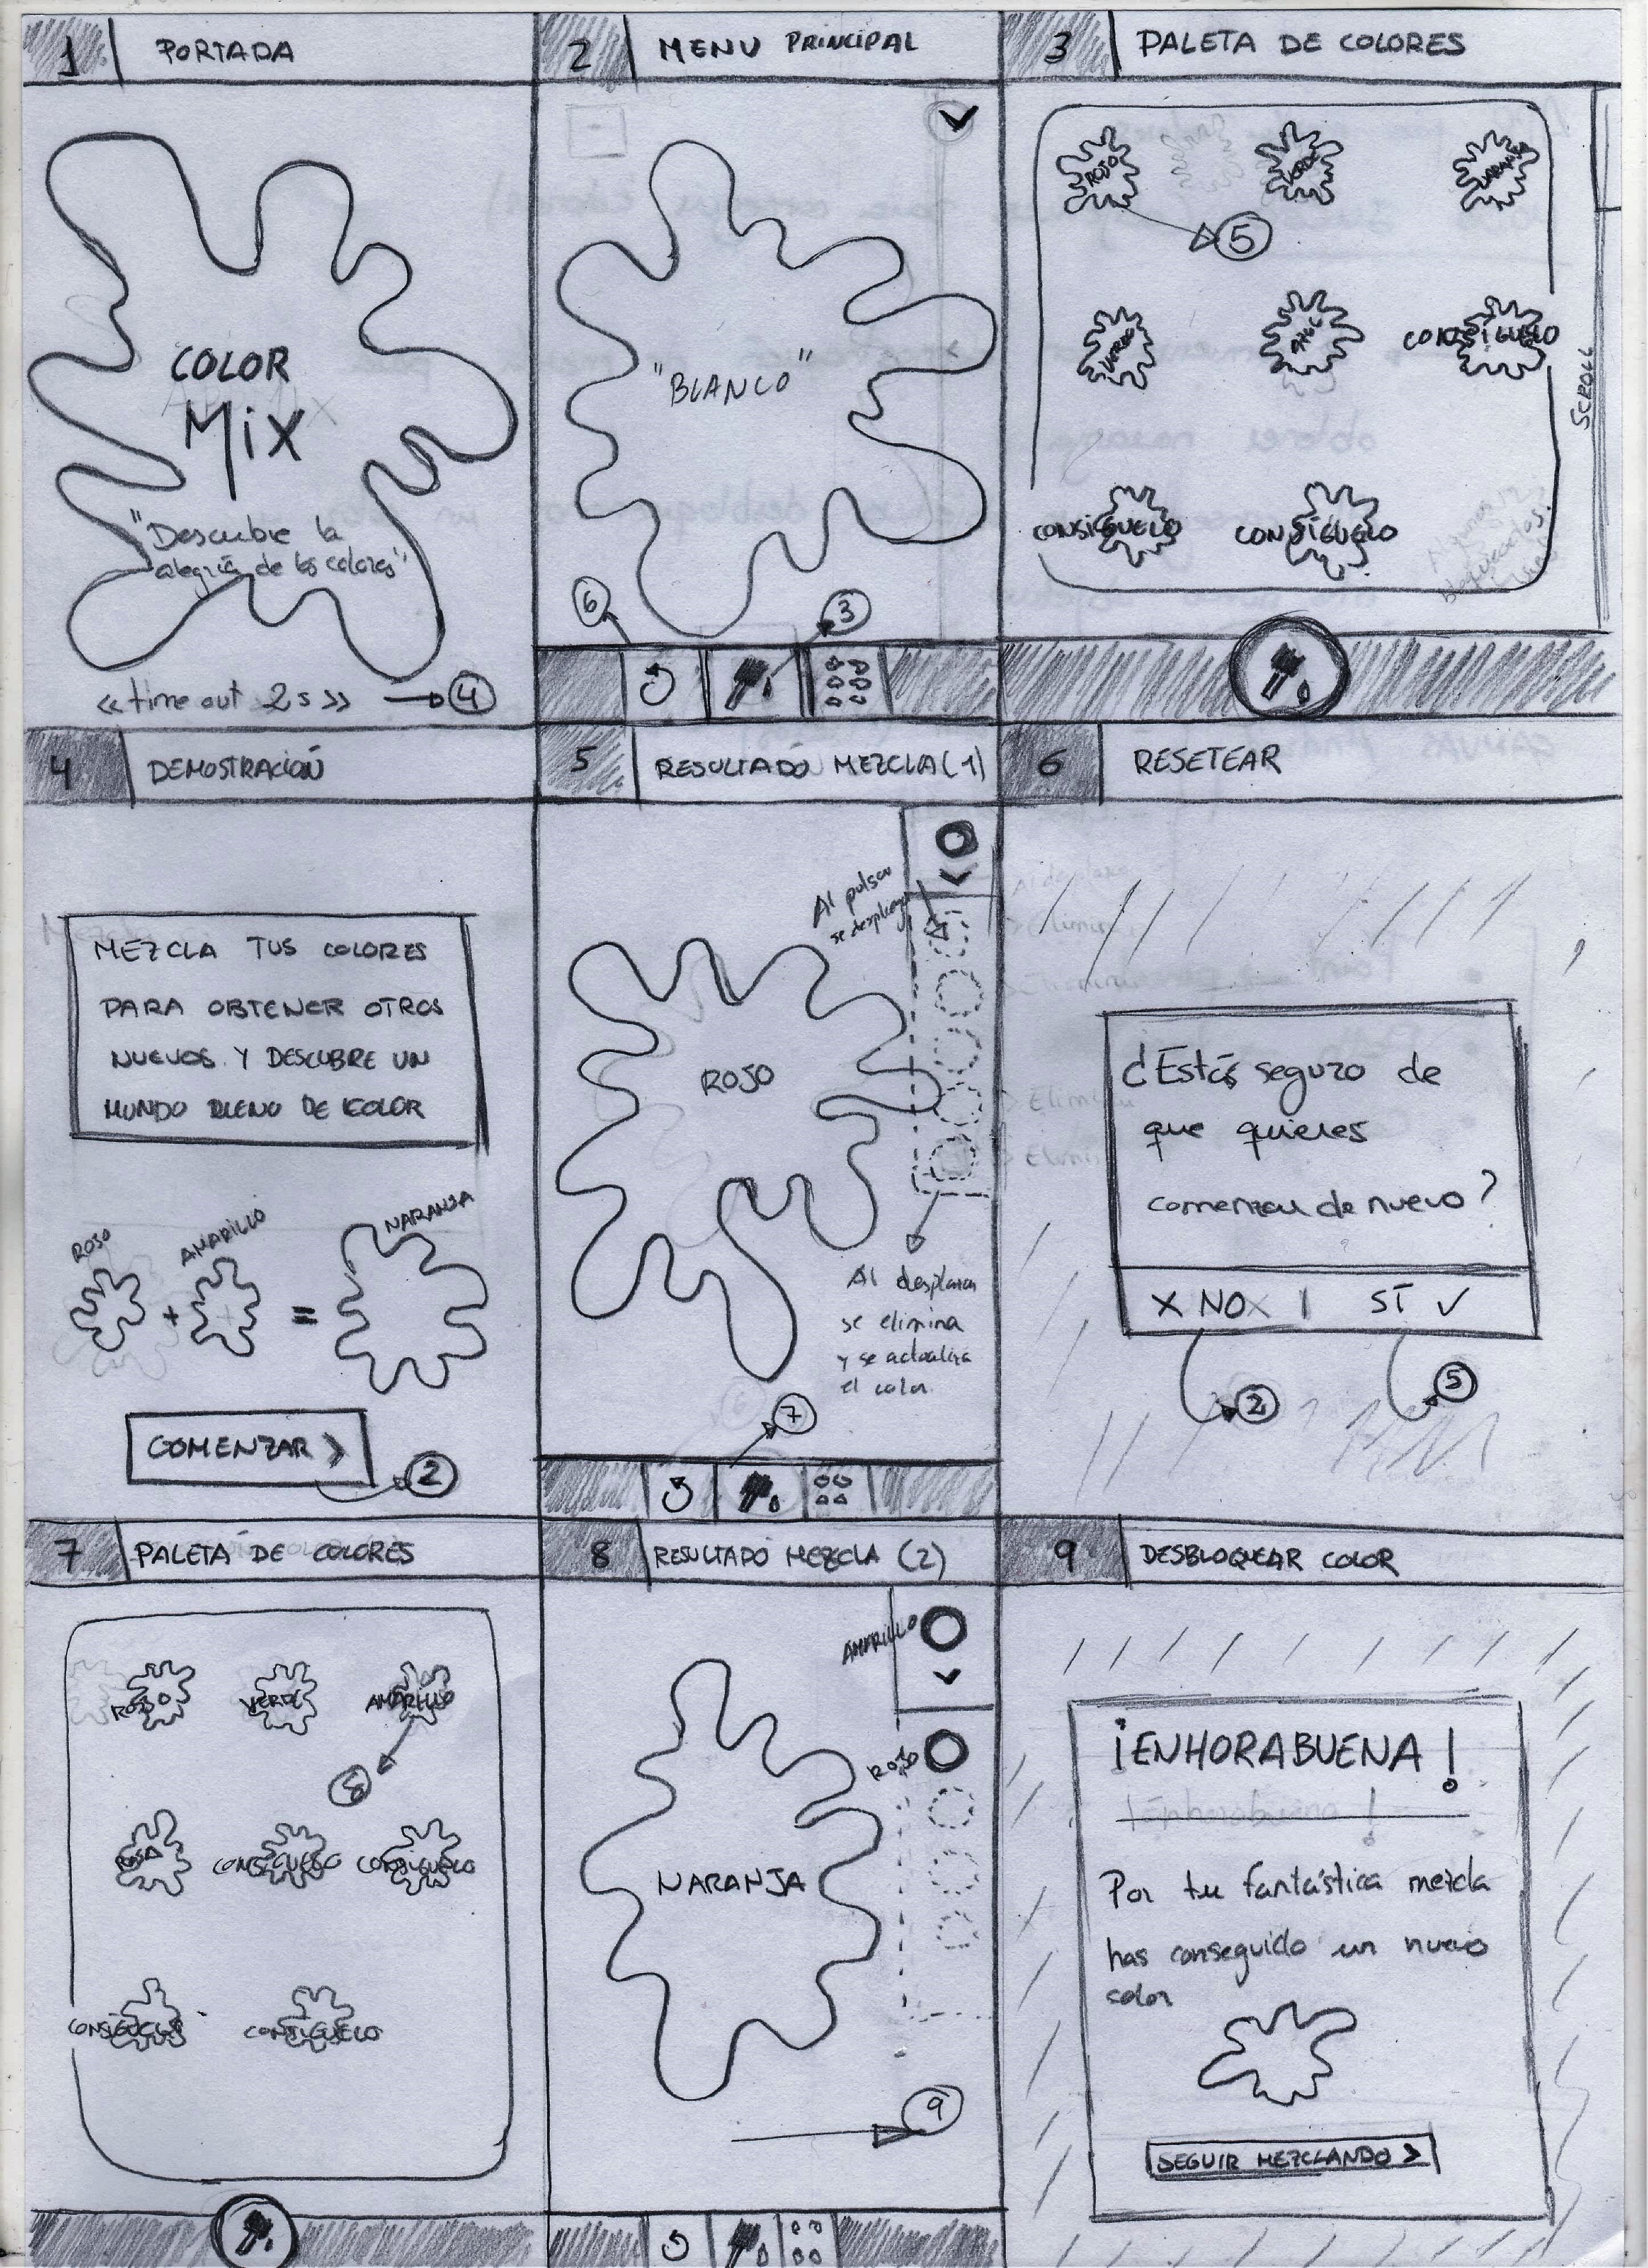 1 PORTADA
COLOR
MiX
"Descubre la
alegría de los colores"
<< time out 2s >> 4
2 MENU PRINCIPAL
"BLANCO"
6
3
3 PALETA DE COLORES
ROJO VERDE NARANJA
5
VERDE AZUL CONSIGUELO
SCROLL
CONSIGUELO CONSIGUELO
4 DEMOSTRACIÓN
MEZCLA TUS COLORES
PARA OBTENER OTROS
NUEVOS Y DESCUBRE UN
MUNDO PLENO DE COLOR
ROJO AMARILLO NARANJA
+ =
COMENZAR >
2
5 RESULTADO MEZCLA (1)
Al pulsar
se despliega
ROJO
Al desplazar
se elimina
y se actualiza
el color.
7
6 RESETEAR
¿Estás seguro de
que quieres
comenzar de nuevo?
X NO | SÍ ✓
2 5
7 PALETA DE COLORES
ROJO VERDE AMARILLO
8
ROSA CONSIGUELO CONSIGUELO
CONSIGUELO CONSIGUELO
8 RESULTADO MEZCLA (2)
AMARILLO
ROJO
NARANJA
9
9 DESBLOQUEAR COLOR
¡ENHORABUENA!
Por tu fantástica mezcla
has conseguido un nuevo
color
SEGUIR MEZCLANDO >